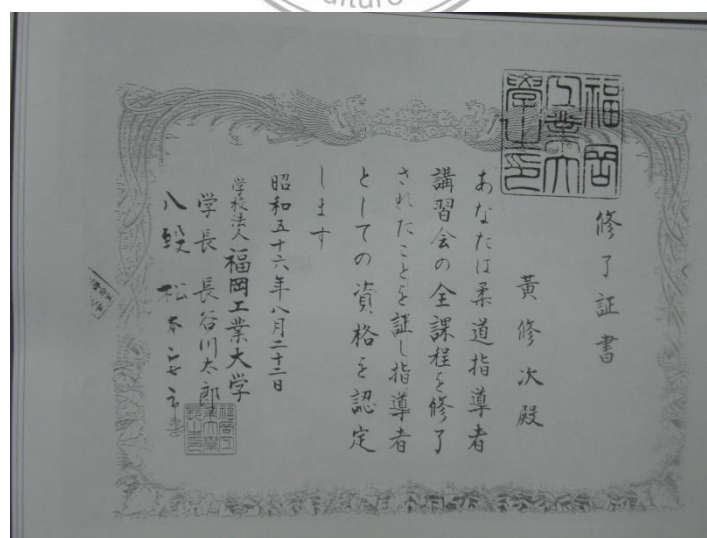 ulture
福岡工業大學之印
修了証書
黃修次殿
あなたは柔道指導者
講習会の全課程を修了
されたことを証し指導者
としての資格を認定
します
昭和五十六年八月二十二日
学校法人福岡工業大学
学長 長谷川太郎
八段 松本安市